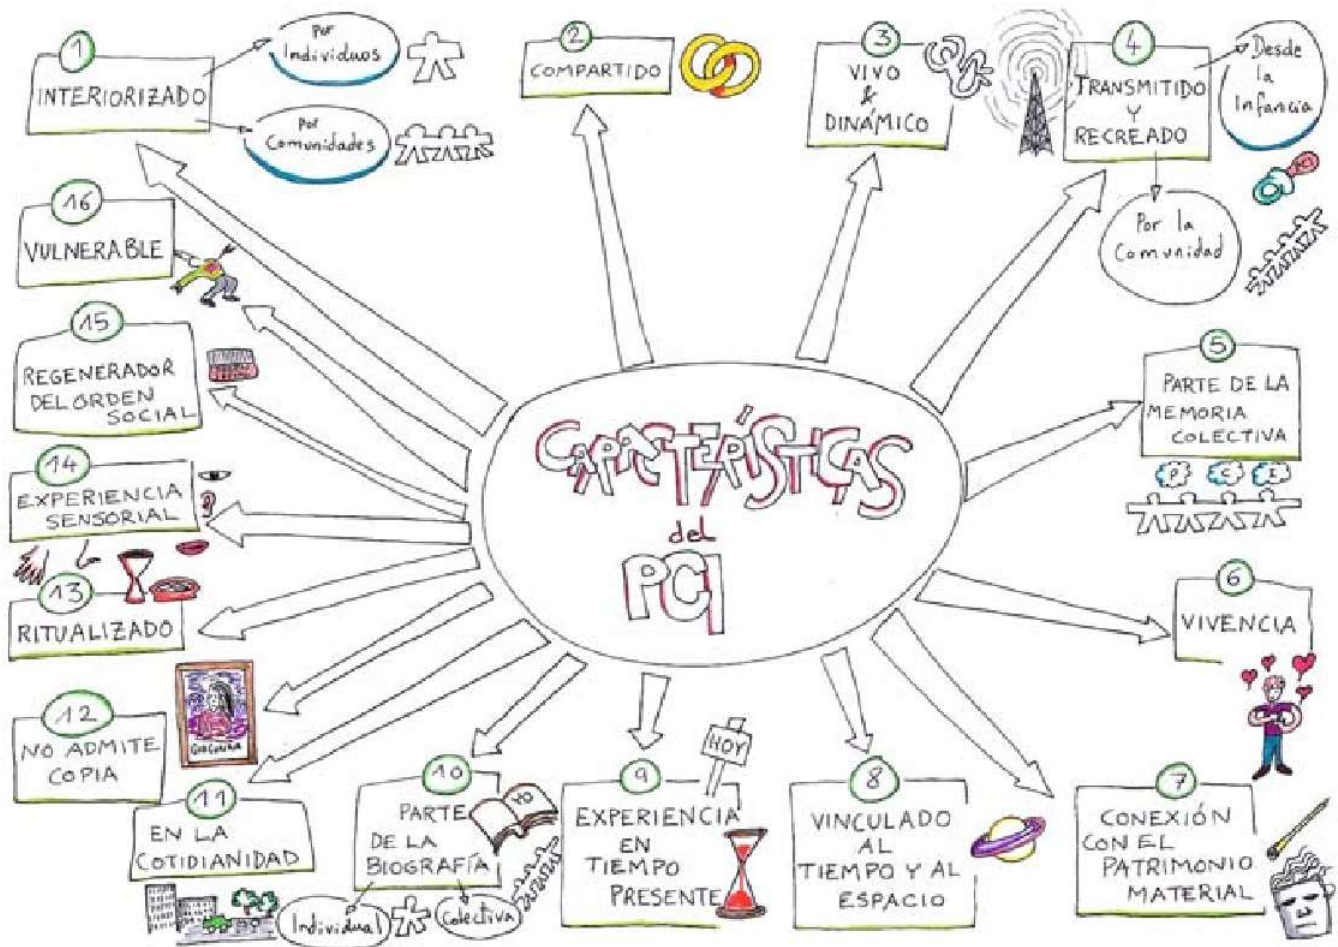 CARACTERÍSTICAS
del
PCI
1
INTERIORIZADO
Por
Individuos
Por
Comunidades
2
COMPARTIDO
3
VIVO
&
DINÁMICO
4
TRANSMITIDO
Y
RECREADO
Desde
la
Infancia
Por la
Comunidad
5
PARTE DE LA
MEMORIA
COLECTIVA
P
C
I
6
VIVENCIA
7
CONEXIÓN
CON EL
PATRIMONIO
MATERIAL
8
VINCULADO
AL
TIEMPO Y AL
ESPACIO
9
EXPERIENCIA
EN
TIEMPO
PRESENTE
HOY
10
PARTE
DE LA
BIOGRAFÍA
YO
Individual
Colectiva
11
EN LA
COTIDIANIDAD
12
NO ADMITE
COPIA
GIOCONDA
13
RITUALIZADO
14
EXPERIENCIA
SENSORIAL
15
REGENERADOR
DEL ORDEN
SOCIAL
16
VULNERABLE